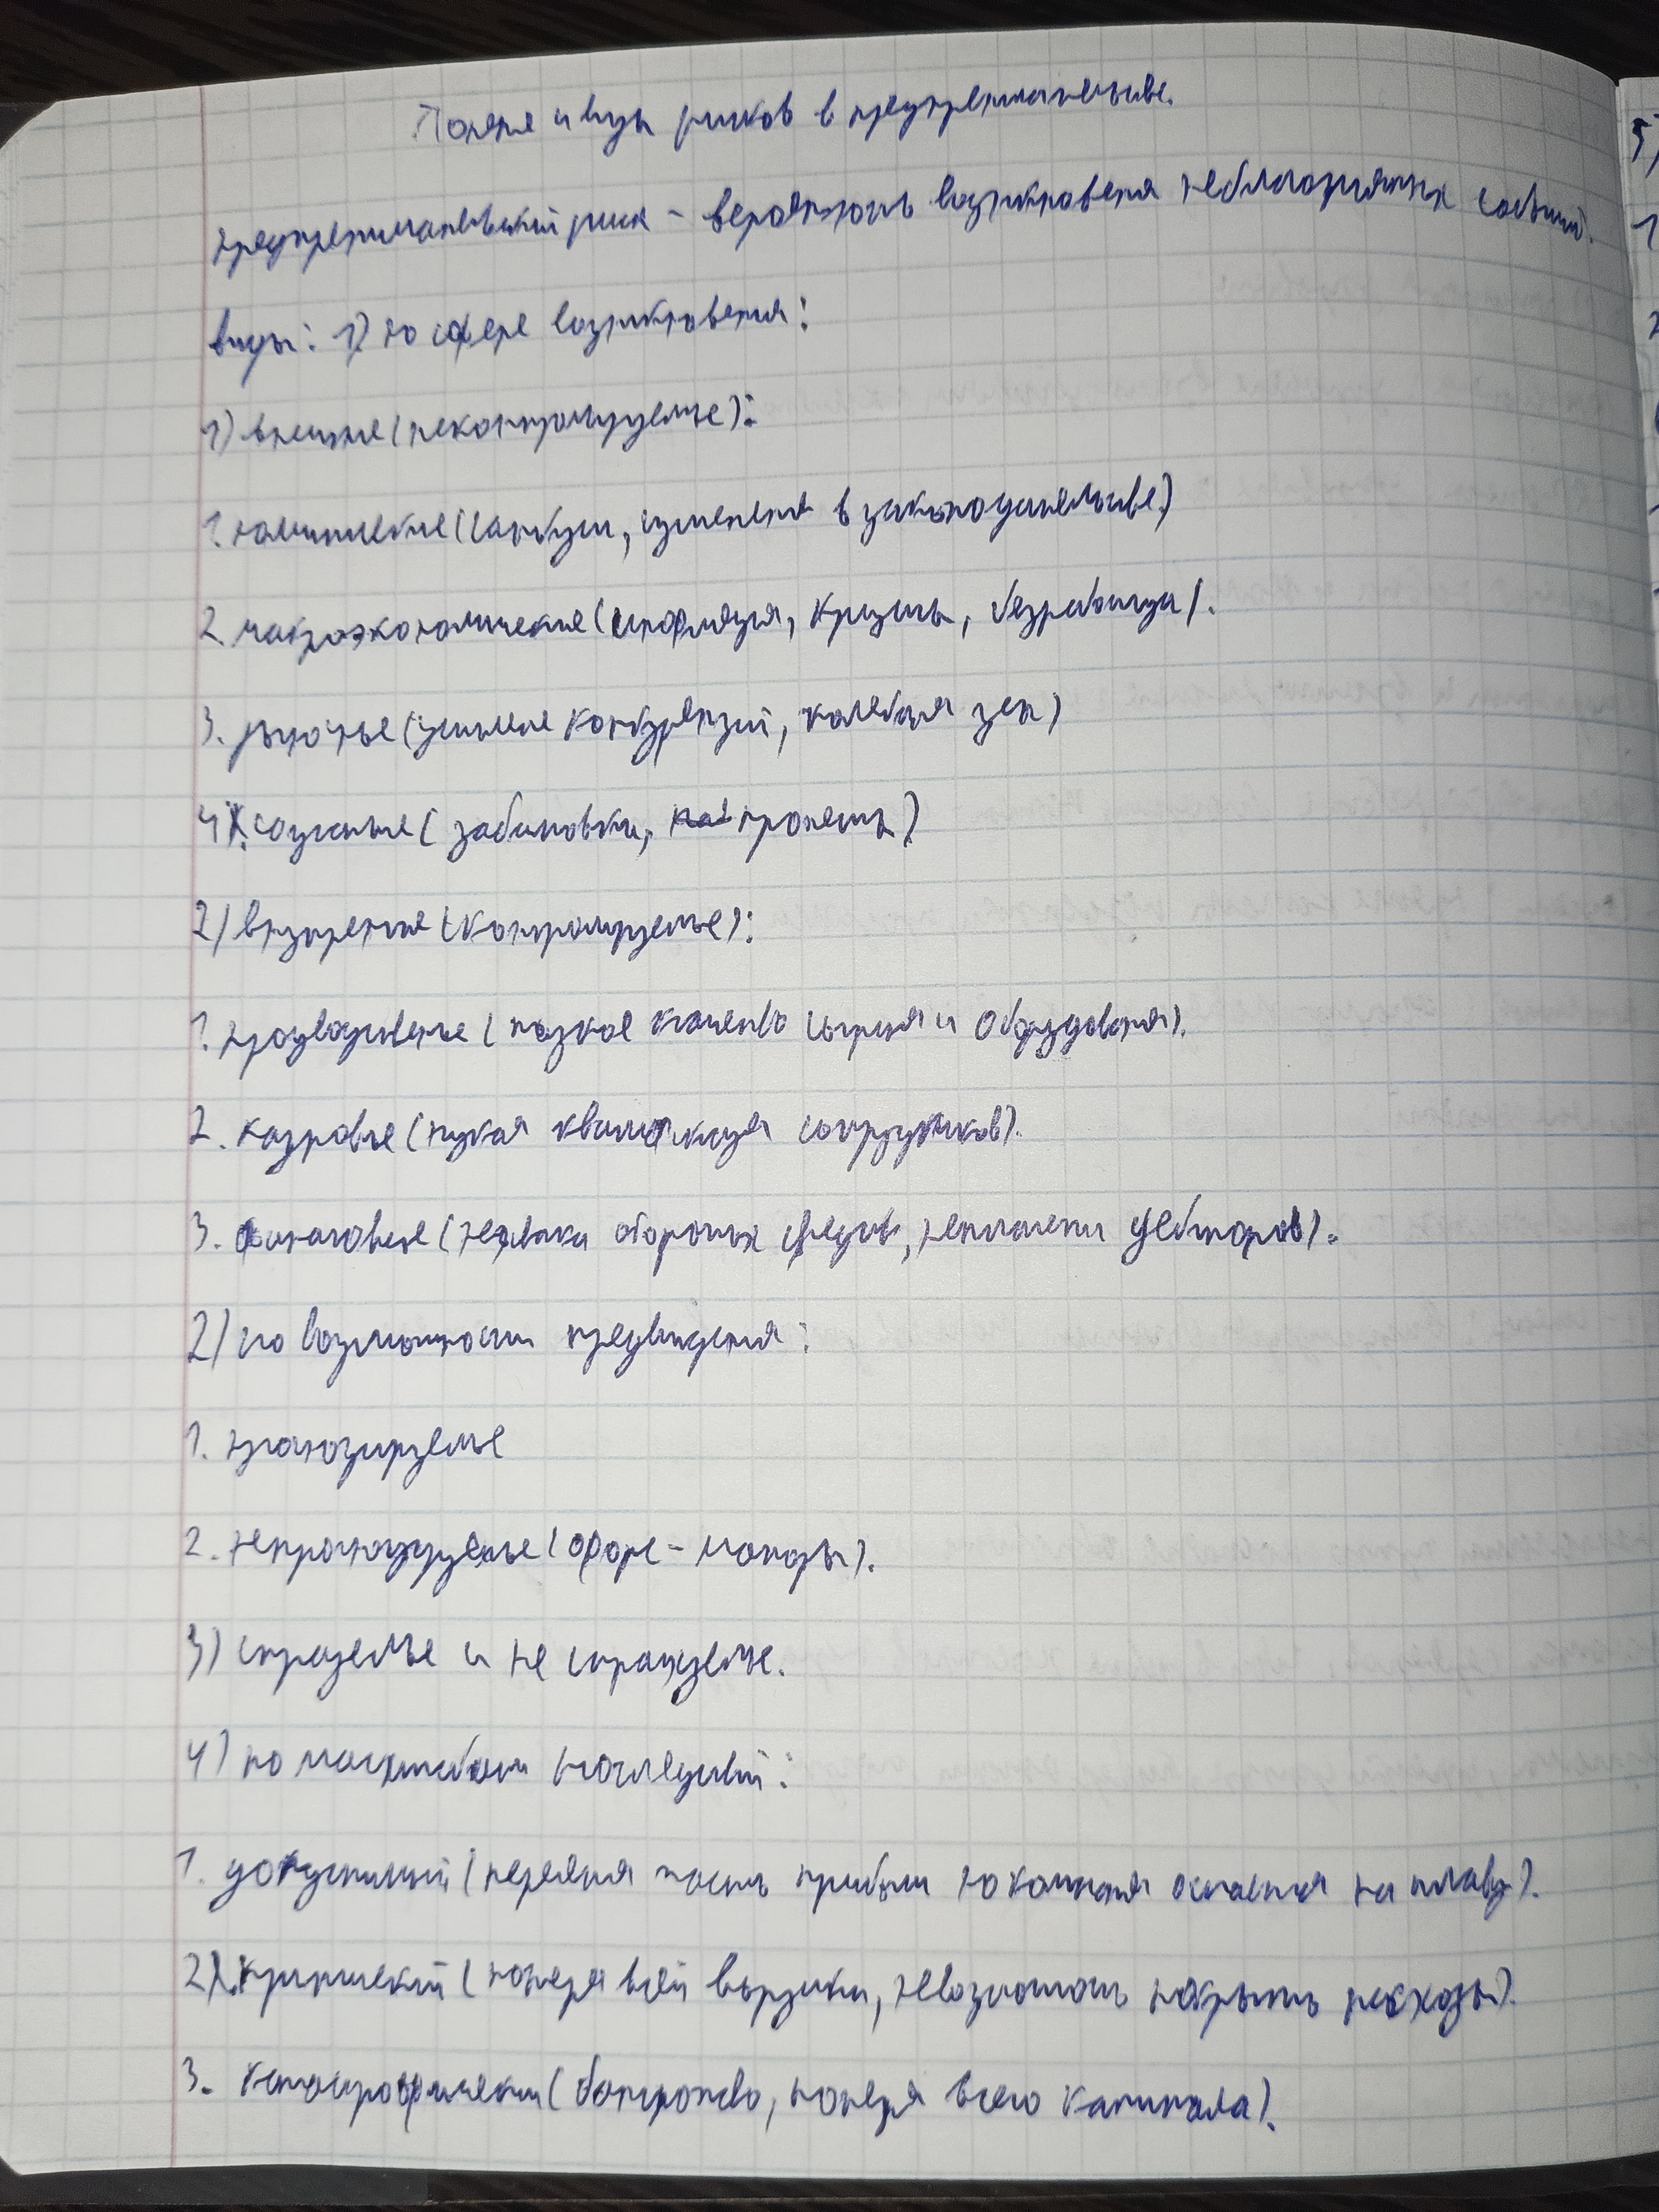 Понятие и виды рисков в предпринимательстве.
предпринимательский риск - вероятность возникновения неблагоприятных событий.
виды: 1) по сфере возникновения:
1) внешние (неконтролируемые):
1. политические (санкции, изменения в законодательстве)
2. макроэкономические (инфляция, кризисы, безработица).
3. рыночные (усиление конкуренций, колебания цен)
4. социальные (забастовки, протесты)
2) внутренние (контролируемые):
1. производственные (низкое качество сырья и оборудования).
2. кадровые (низкая квалификация сотрудников).
3. финансовые (нехватка оборотных средств, неплатежи дебиторов).
2) по возможности предвидения:
1. прогнозируемые
2. непрогнозируемые (форс-мажоры).
3) страхуемые и не страхуемые.
4) по масштабам последствий:
1. допустимый (потеря часть прибыли но компания остается на плаву).
2. критический (потеря всей выручки, невозможность покрыть расходы).
3. катастрофический (банкротство, потеря всего капитала).